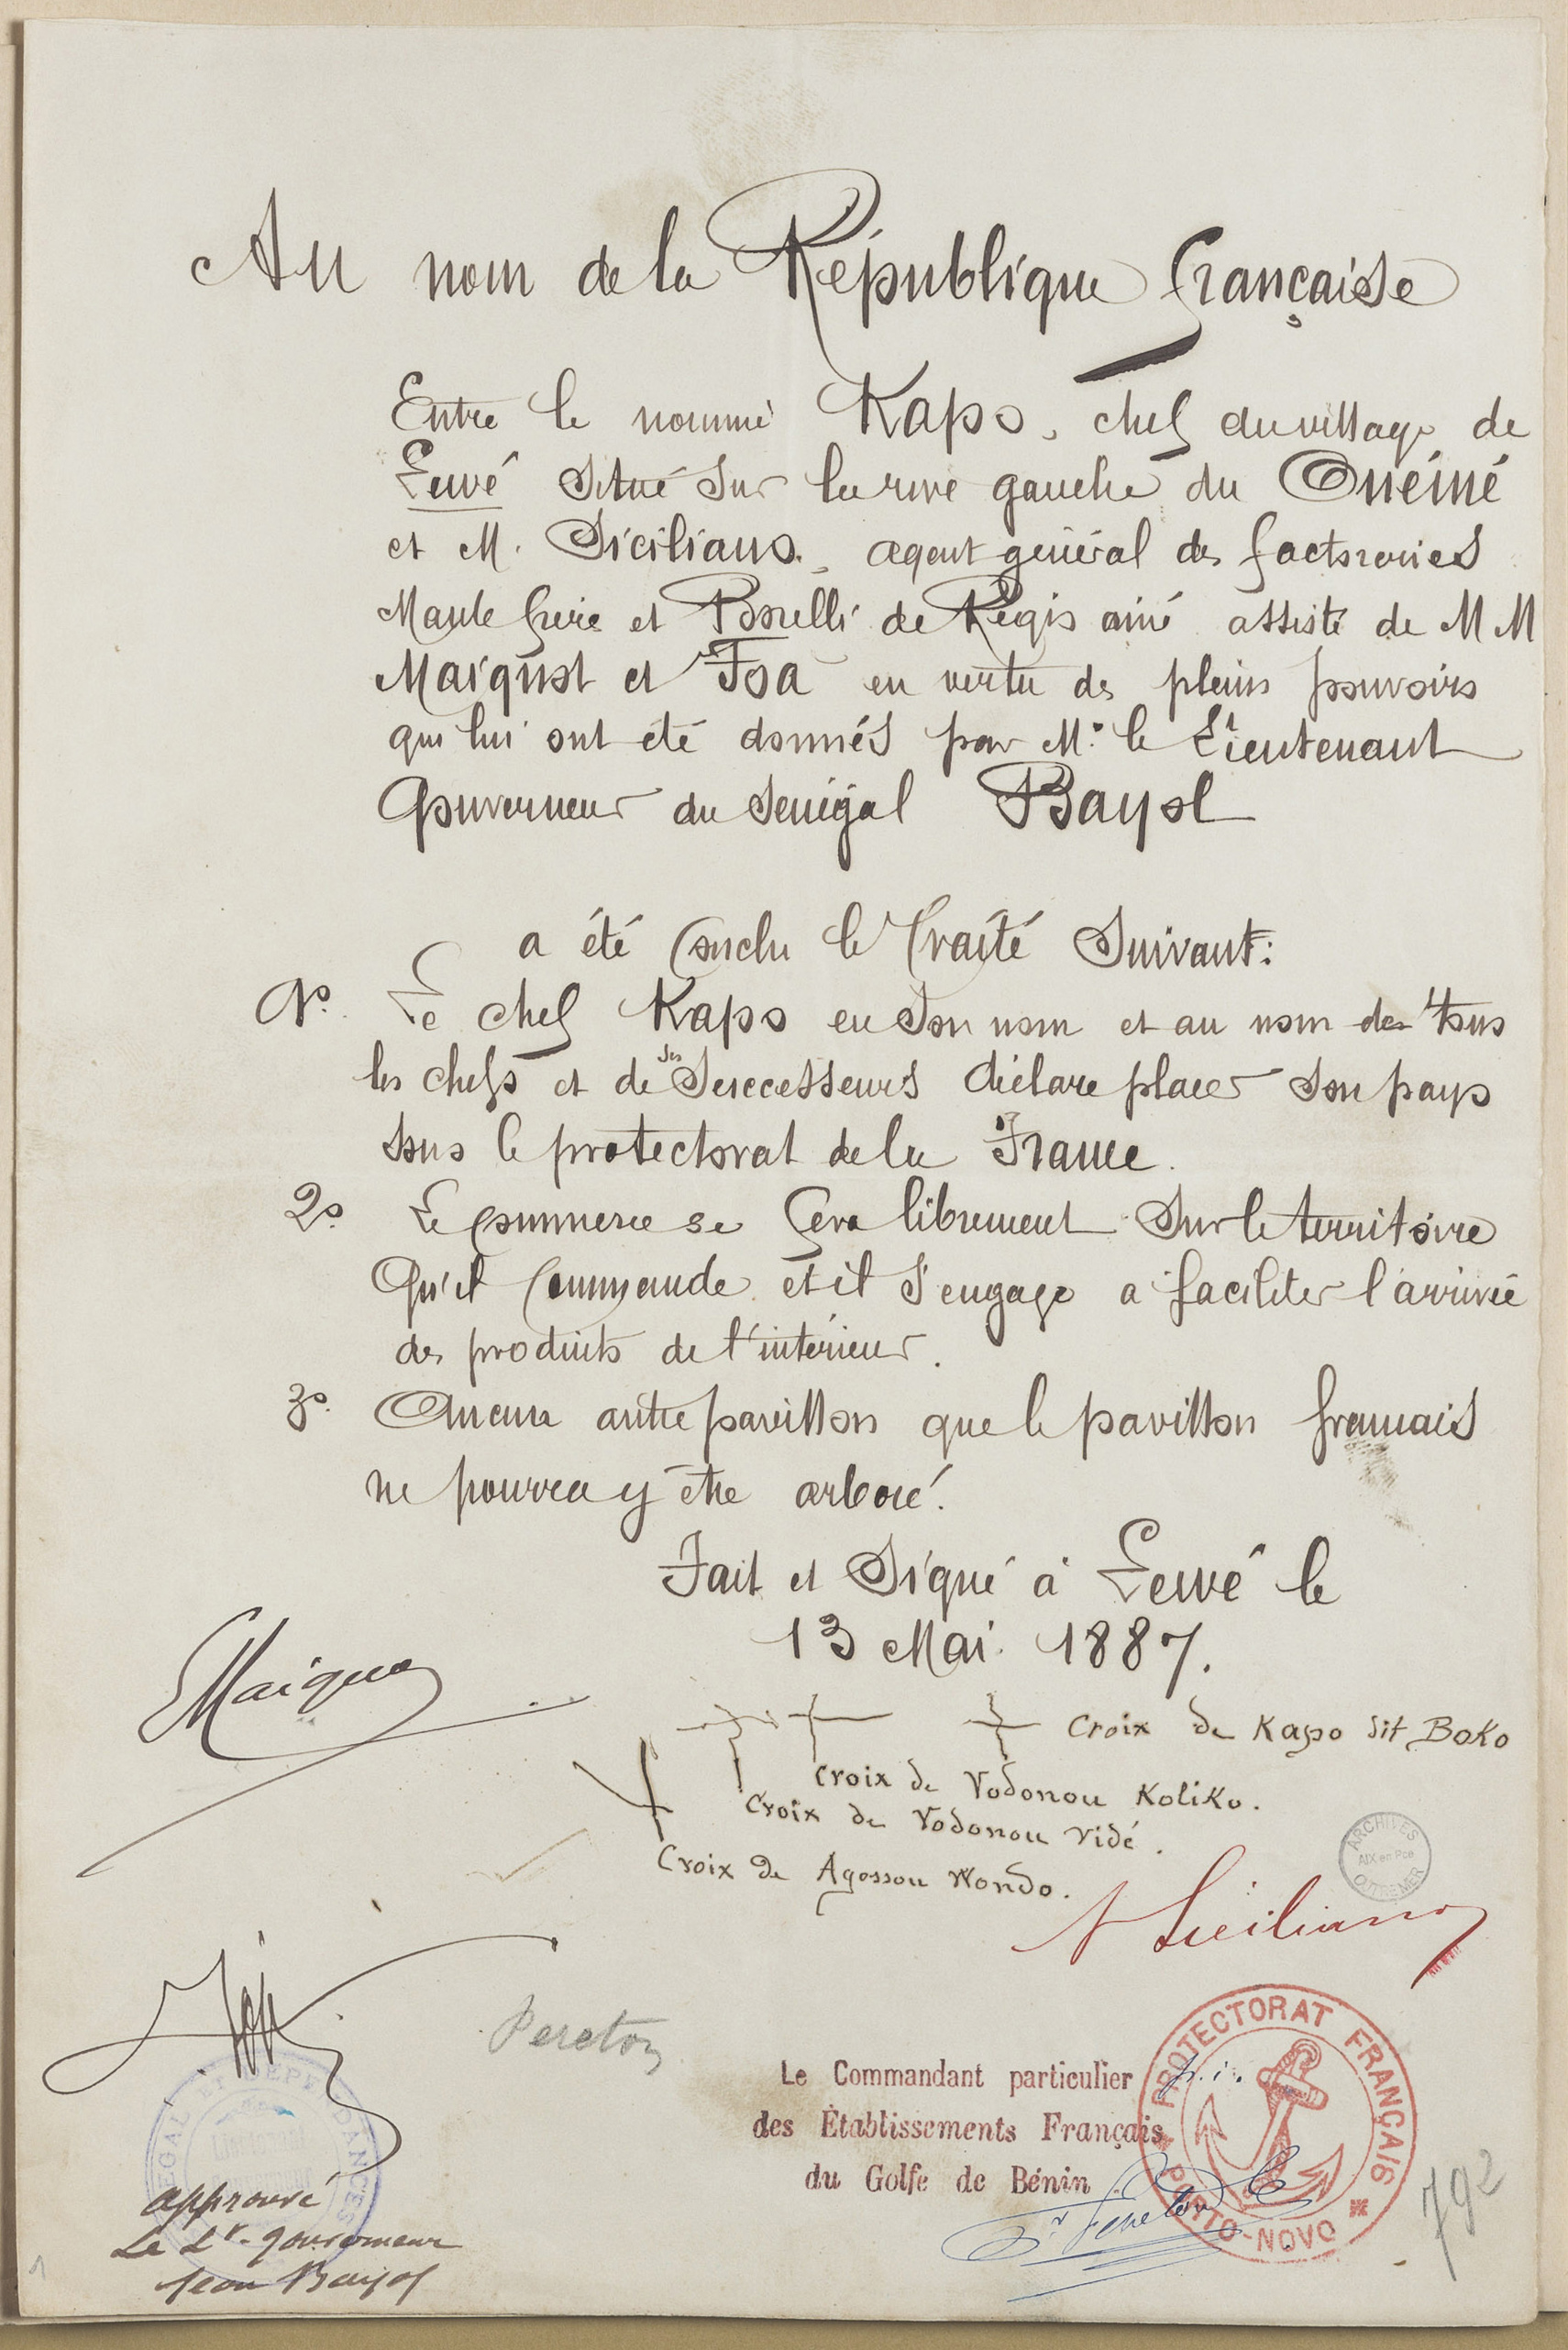 Au nom de la République française
Entre le nommé Kapo, chef du village de
Lewé situé sur la rive gauche du Ouémé
et M. Siciliano, agent général des factoreries
Mante frère et Borelli de Régis ainé assisté de M M
Maiquot et Foa en vertu des pleins pouvoirs
qui lui ont été donnés par M. le Lieutenant
Gouverneur du Sénégal Bayol
a été conclu le traité suivant:
1º. Le chef Kapo en son nom et au nom de tous
les chefs et de ses Successeurs déclare placer son pays
sous le protectorat de la France.
2º Le commerce se fera librement sur le territoire
qu'il commande et il s'engage a faciliter l'arrivée
des produits de l'intérieur.
3º. Aucun autre pavillon que le pavillon francais
ne pourra y être arboré.
Fait et Signé à Lewé le
13 Mai 1887.
Croix de Kapo dit Boko
Croix de Vodonou Koliko.
Croix de Vodonou Vidé.
Croix de Agossou Wondo.
ARCHIVES
AIX en Pce
OUTRE MER
Siciliano
Pereton
Le Commandant particulier p. i.
des Établissements Français
du Golfe de Bénin
PROTECTORAT FRANÇAIS
PORTO-NOVO
Pereton
792
SENEGAL ET DEPENDANCES
approuvé
Le Lt. gouverneur
Jean Bayol
1